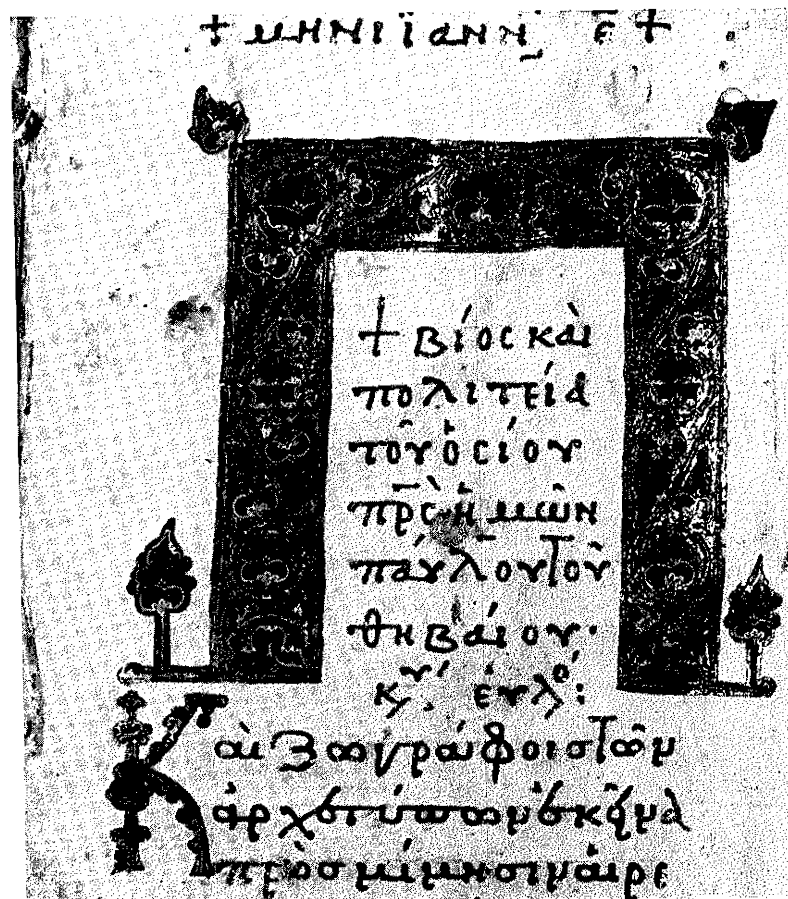 + μηνὶ ἰαννῇ ε̅ +
+ βίος καὶ
πολιτεία
τοῦ ὁσίου
πρ̅ς ἡμῶν
παύλου τοῦ
θηβαίου·
κ͞υ. εὐλό:
Καὶ ζωγράφοις τῶν
ἀρχετύπων
πρὸς μίμησιν αἱρε